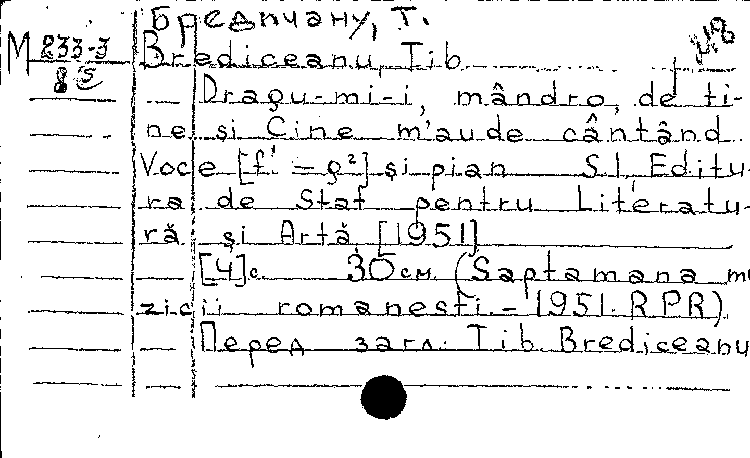 Бредичану, Т.
М 233-3
8
Brediceanu, Tib.
Dragu-mi-i, mândro, de ti-
ne și Cine m'aude cântând.
Voce [f' - g²] și pian S.l., Editu-
ra de Stat pentru Literatu-
ră și Artă, [1951]
[4] с. 30 см. (Saptamana mu
zicii romanesti. - 1951. R.P.R.)
Перед загл.: Tib. Brediceanu